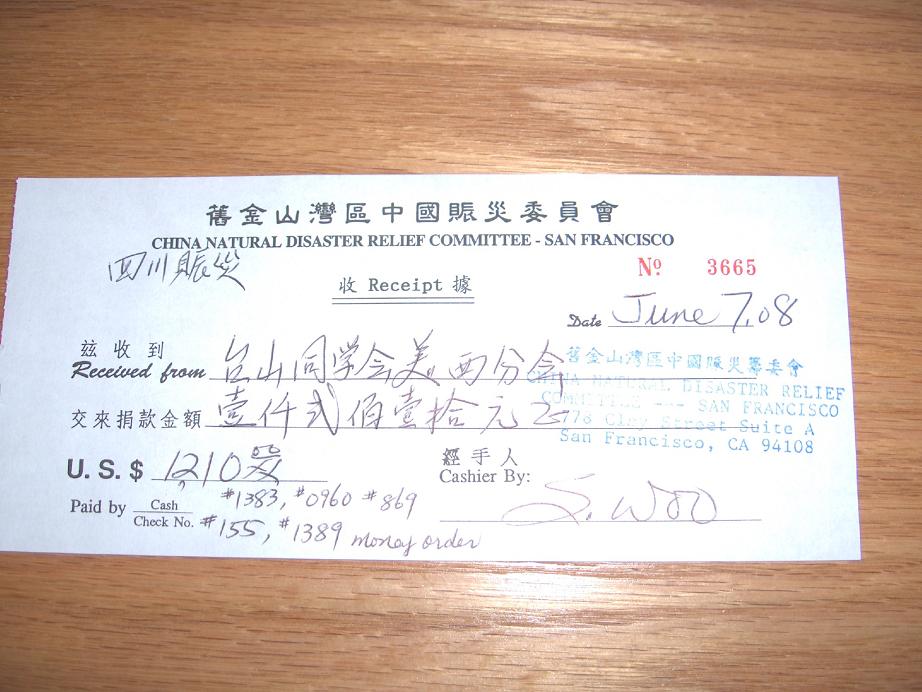 舊金山灣區中國賑災委員會
CHINA NATURAL DISASTER RELIEF COMMITTEE - SAN FRANCISCO
四川賑災
Nº 3665
收 Receipt 據
Date June 7, 08
茲收到
Received from 台山同学会美西分会
交來捐款金額 壹仟弍佰壹拾元正
舊金山灣區中國賑災籌委會
CHINA NATURAL DISASTER RELIEF
COMMITTEE --- SAN FRANCISCO
778 Clay Street Suite A
San Francisco, CA 94108
U.S. $ 1,210 00/xx
經手人
Cashier By: S. Woo
Paid by Cash
Check No. #1383, #0960 #869
#155, #1389 money order